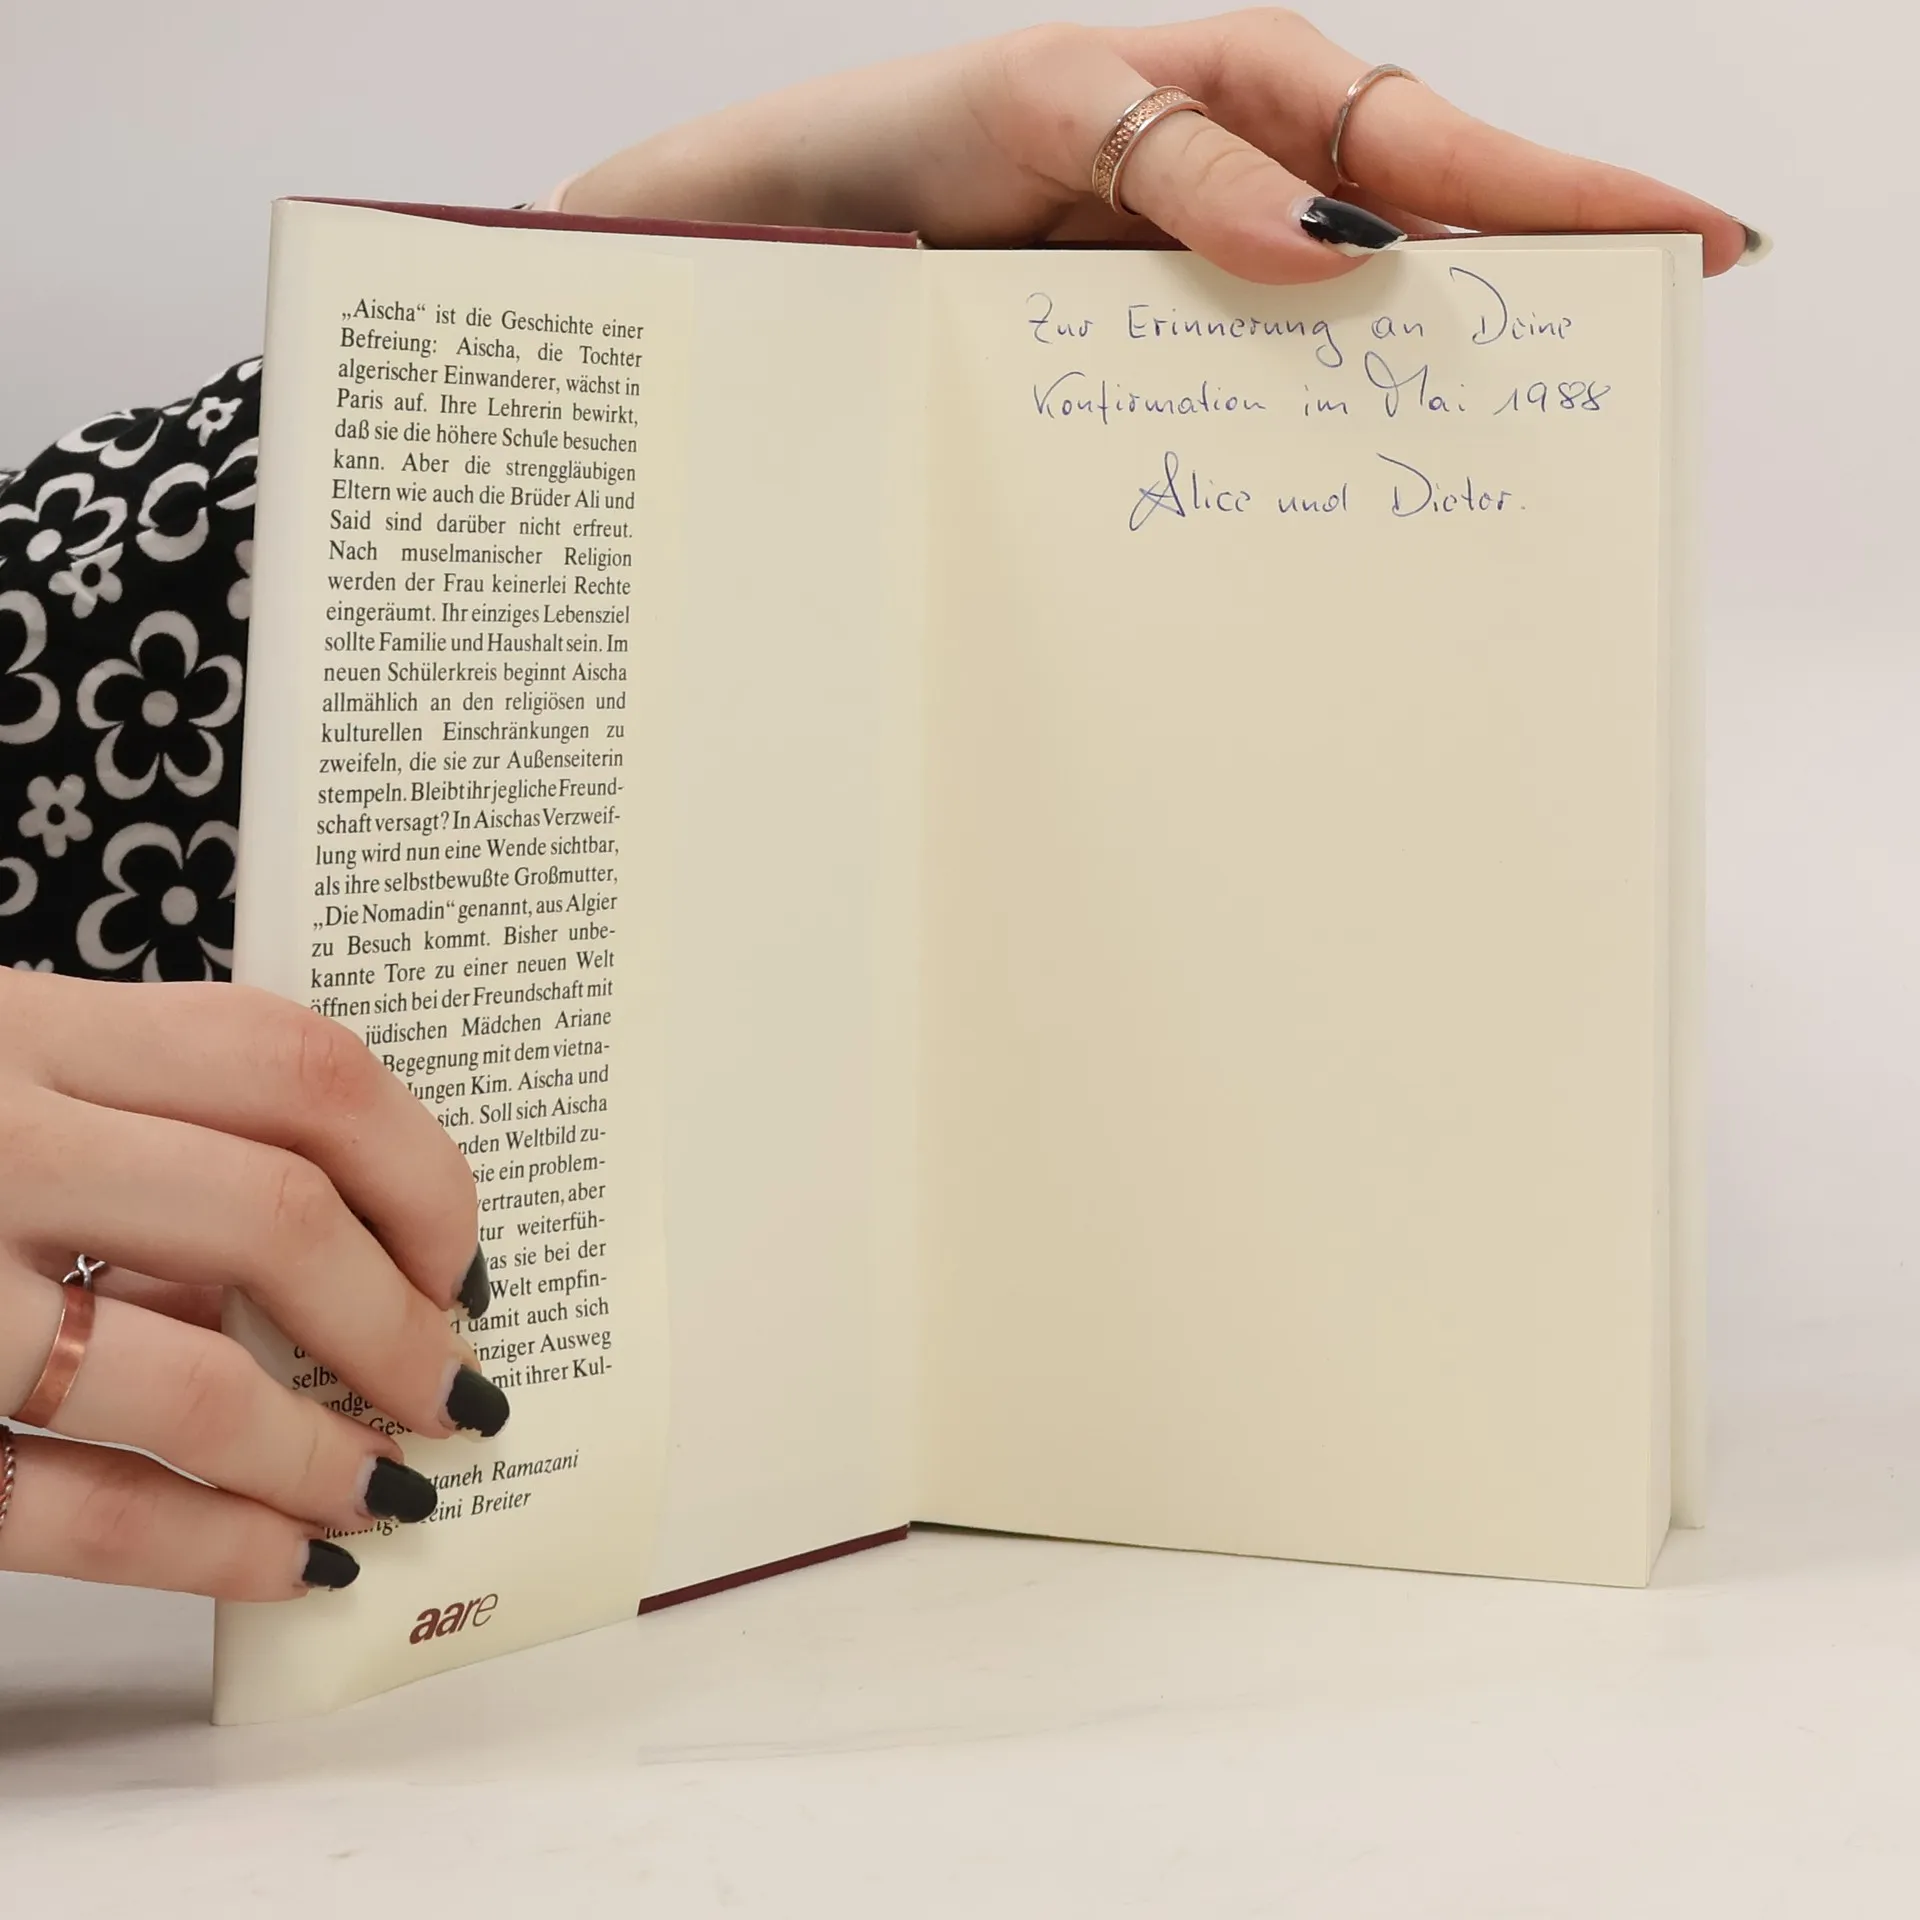 „Aischa“ ist die Geschichte einer
Befreiung: Aischa, die Tochter
algerischer Einwanderer, wächst in
Paris auf. Ihre Lehrerin bewirkt,
daß sie die höhere Schule besuchen
kann. Aber die strenggläubigen
Eltern wie auch die Brüder Ali und
Said sind darüber nicht erfreut.
Nach muselmanischer Religion
werden der Frau keinerlei Rechte
eingeräumt. Ihr einziges Lebensziel
sollte Familie und Haushalt sein. Im
neuen Schülerkreis beginnt Aischa
allmählich an den religiösen und
kulturellen Einschränkungen zu
zweifeln, die sie zur Außenseiterin
stempeln. Bleibt ihr jegliche Freund-
schaft versagt? In Aischas Verzweif-
lung wird nun eine Wende sichtbar,
als ihre selbstbewußte Großmutter,
„Die Nomadin“ genannt, aus Algier
zu Besuch kommt. Bisher unbe-
kannte Tore zu einer neuen Welt
öffnen sich bei der Freundschaft mit
jüdischen Mädchen Ariane
Begegnung mit dem vietna-
Jungen Kim. Aischa und
sich. Soll sich Aischa
nden Weltbild zu-
sie ein problem-
vertrauten, aber
tur weiterfüh-
was sie bei der
Welt empfin-
damit auch sich
inziger Ausweg
selbs mit ihrer Kul-
taneh Ramazani
eini Breiter
aare
Zur Erinnerung an Deine
Konfirmation im Mai 1988
Alice und Dieter.